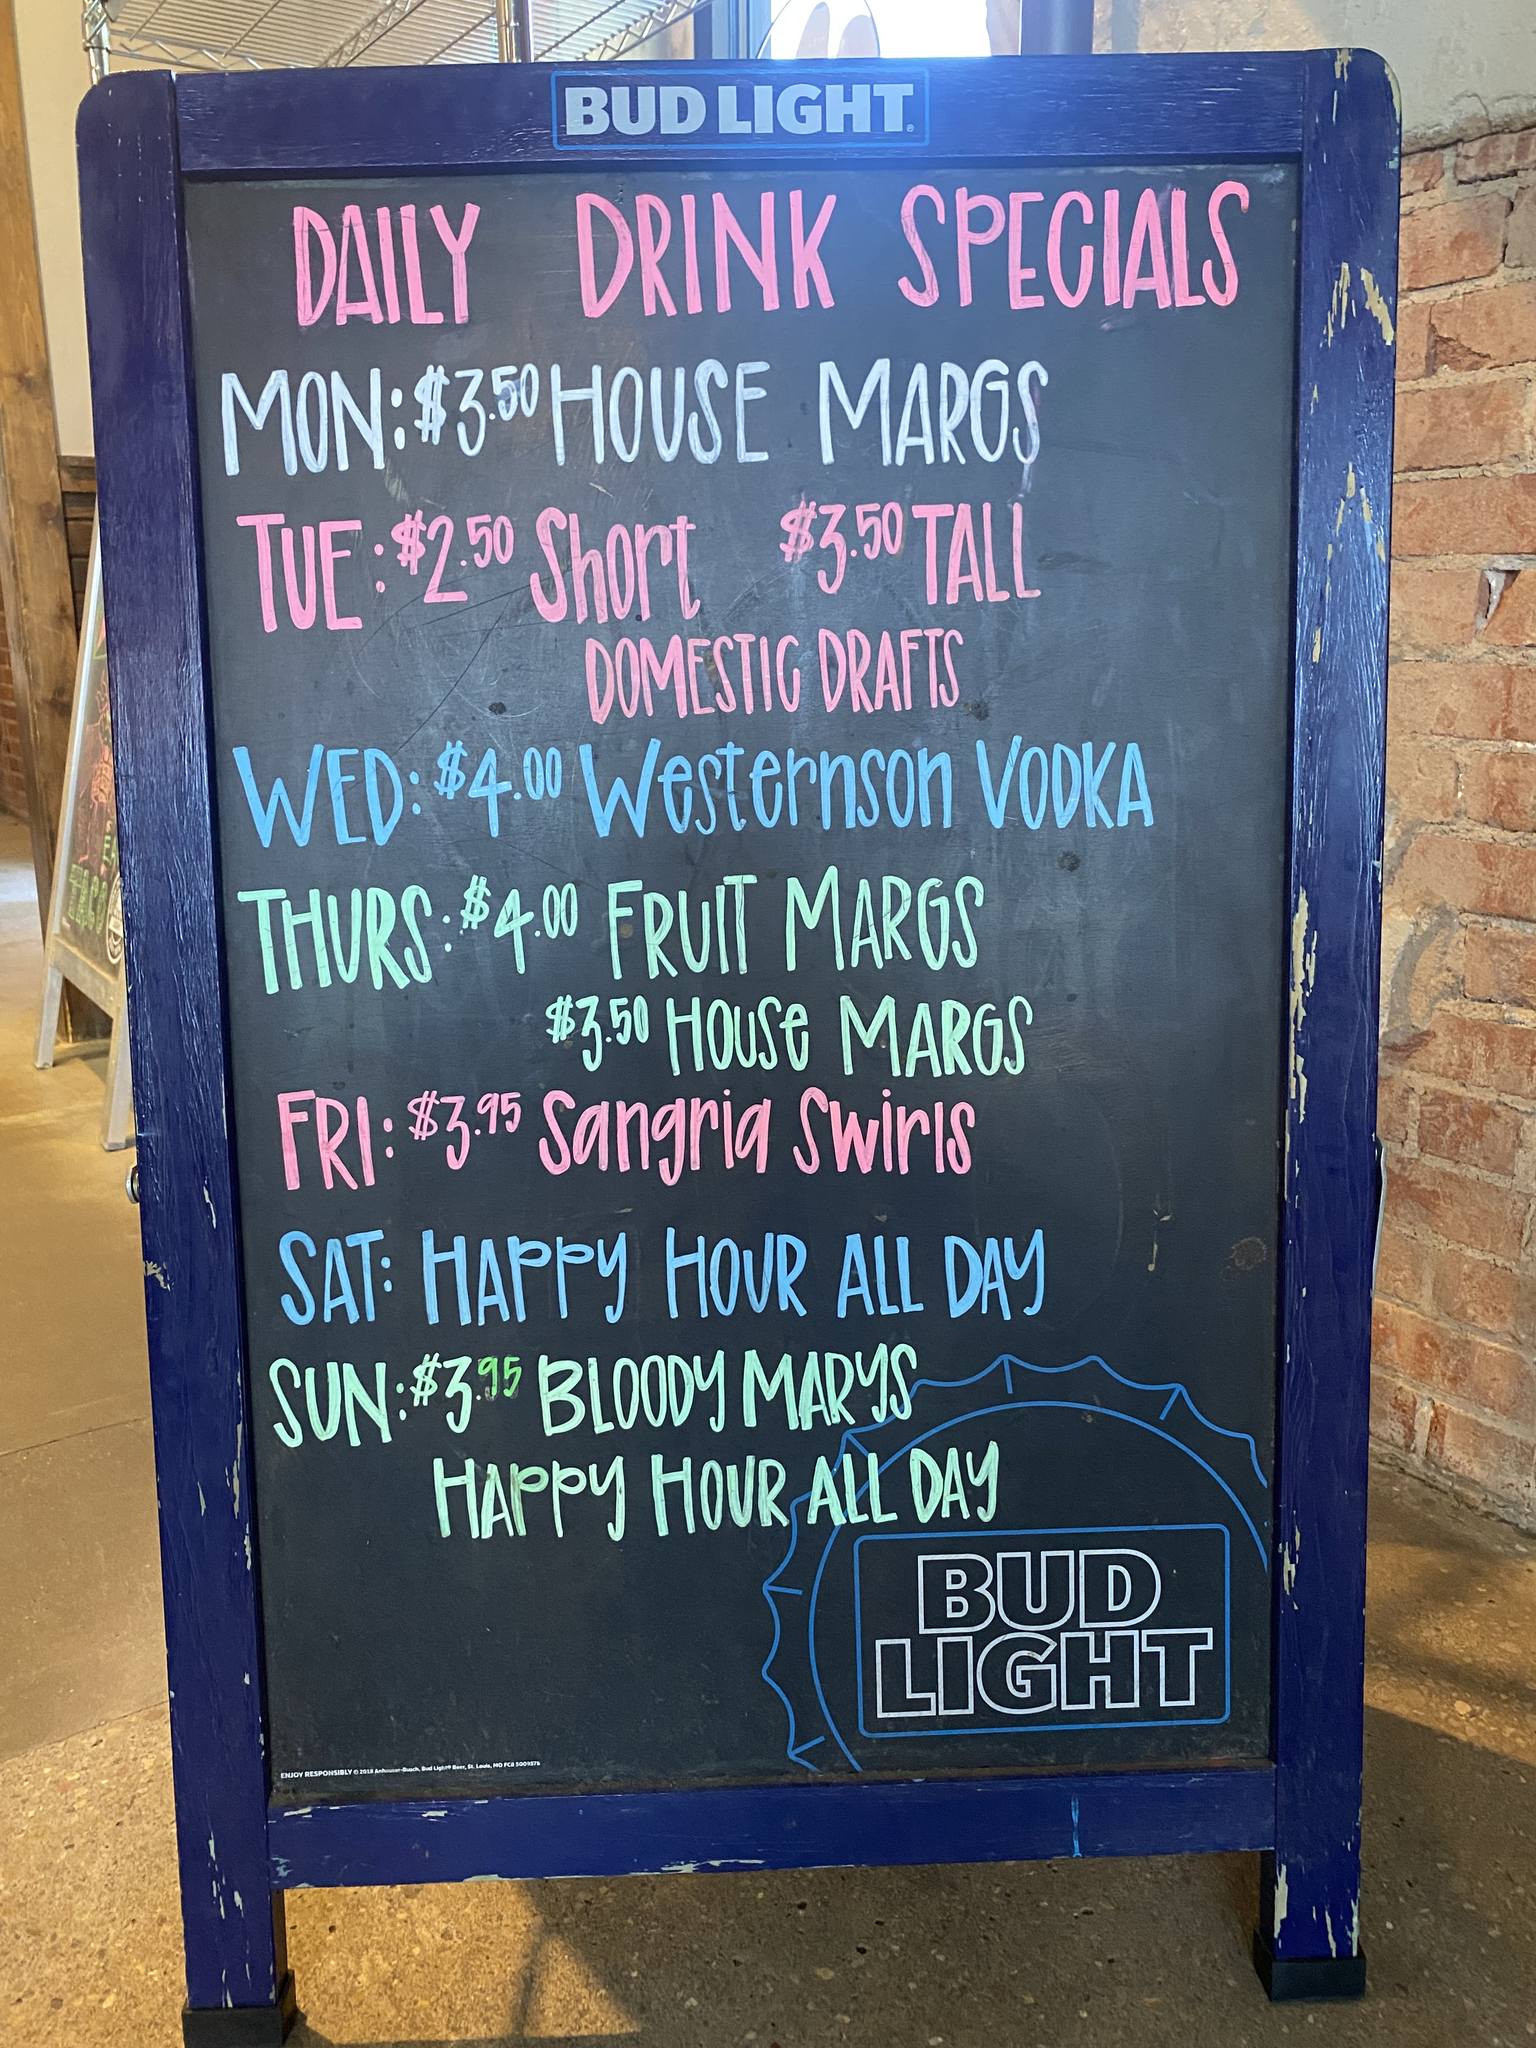 BUD LIGHT
DAILY DRINK SPECIALS
MON: $3.50 HOUSE MARGS
TUE: $2.50 Short $3.50 TALL
DOMESTIC DRAFTS
WED: $4.00 Westernson VODKA
THURS: $4.00 FRUIT MARGS
$3.50 House MARGS
FRI: $3.95 Sangria Swirls
SAT: HAPPY HOUR ALL DAY
SUN: $3.95 BLOODY MARYS
HAPPY HOUR ALL DAY
BUD
LIGHT
ENJOY RESPONSIBLY © 2018 Anheuser-Busch, Bud Light® Beer, St. Louis, MO
TACO